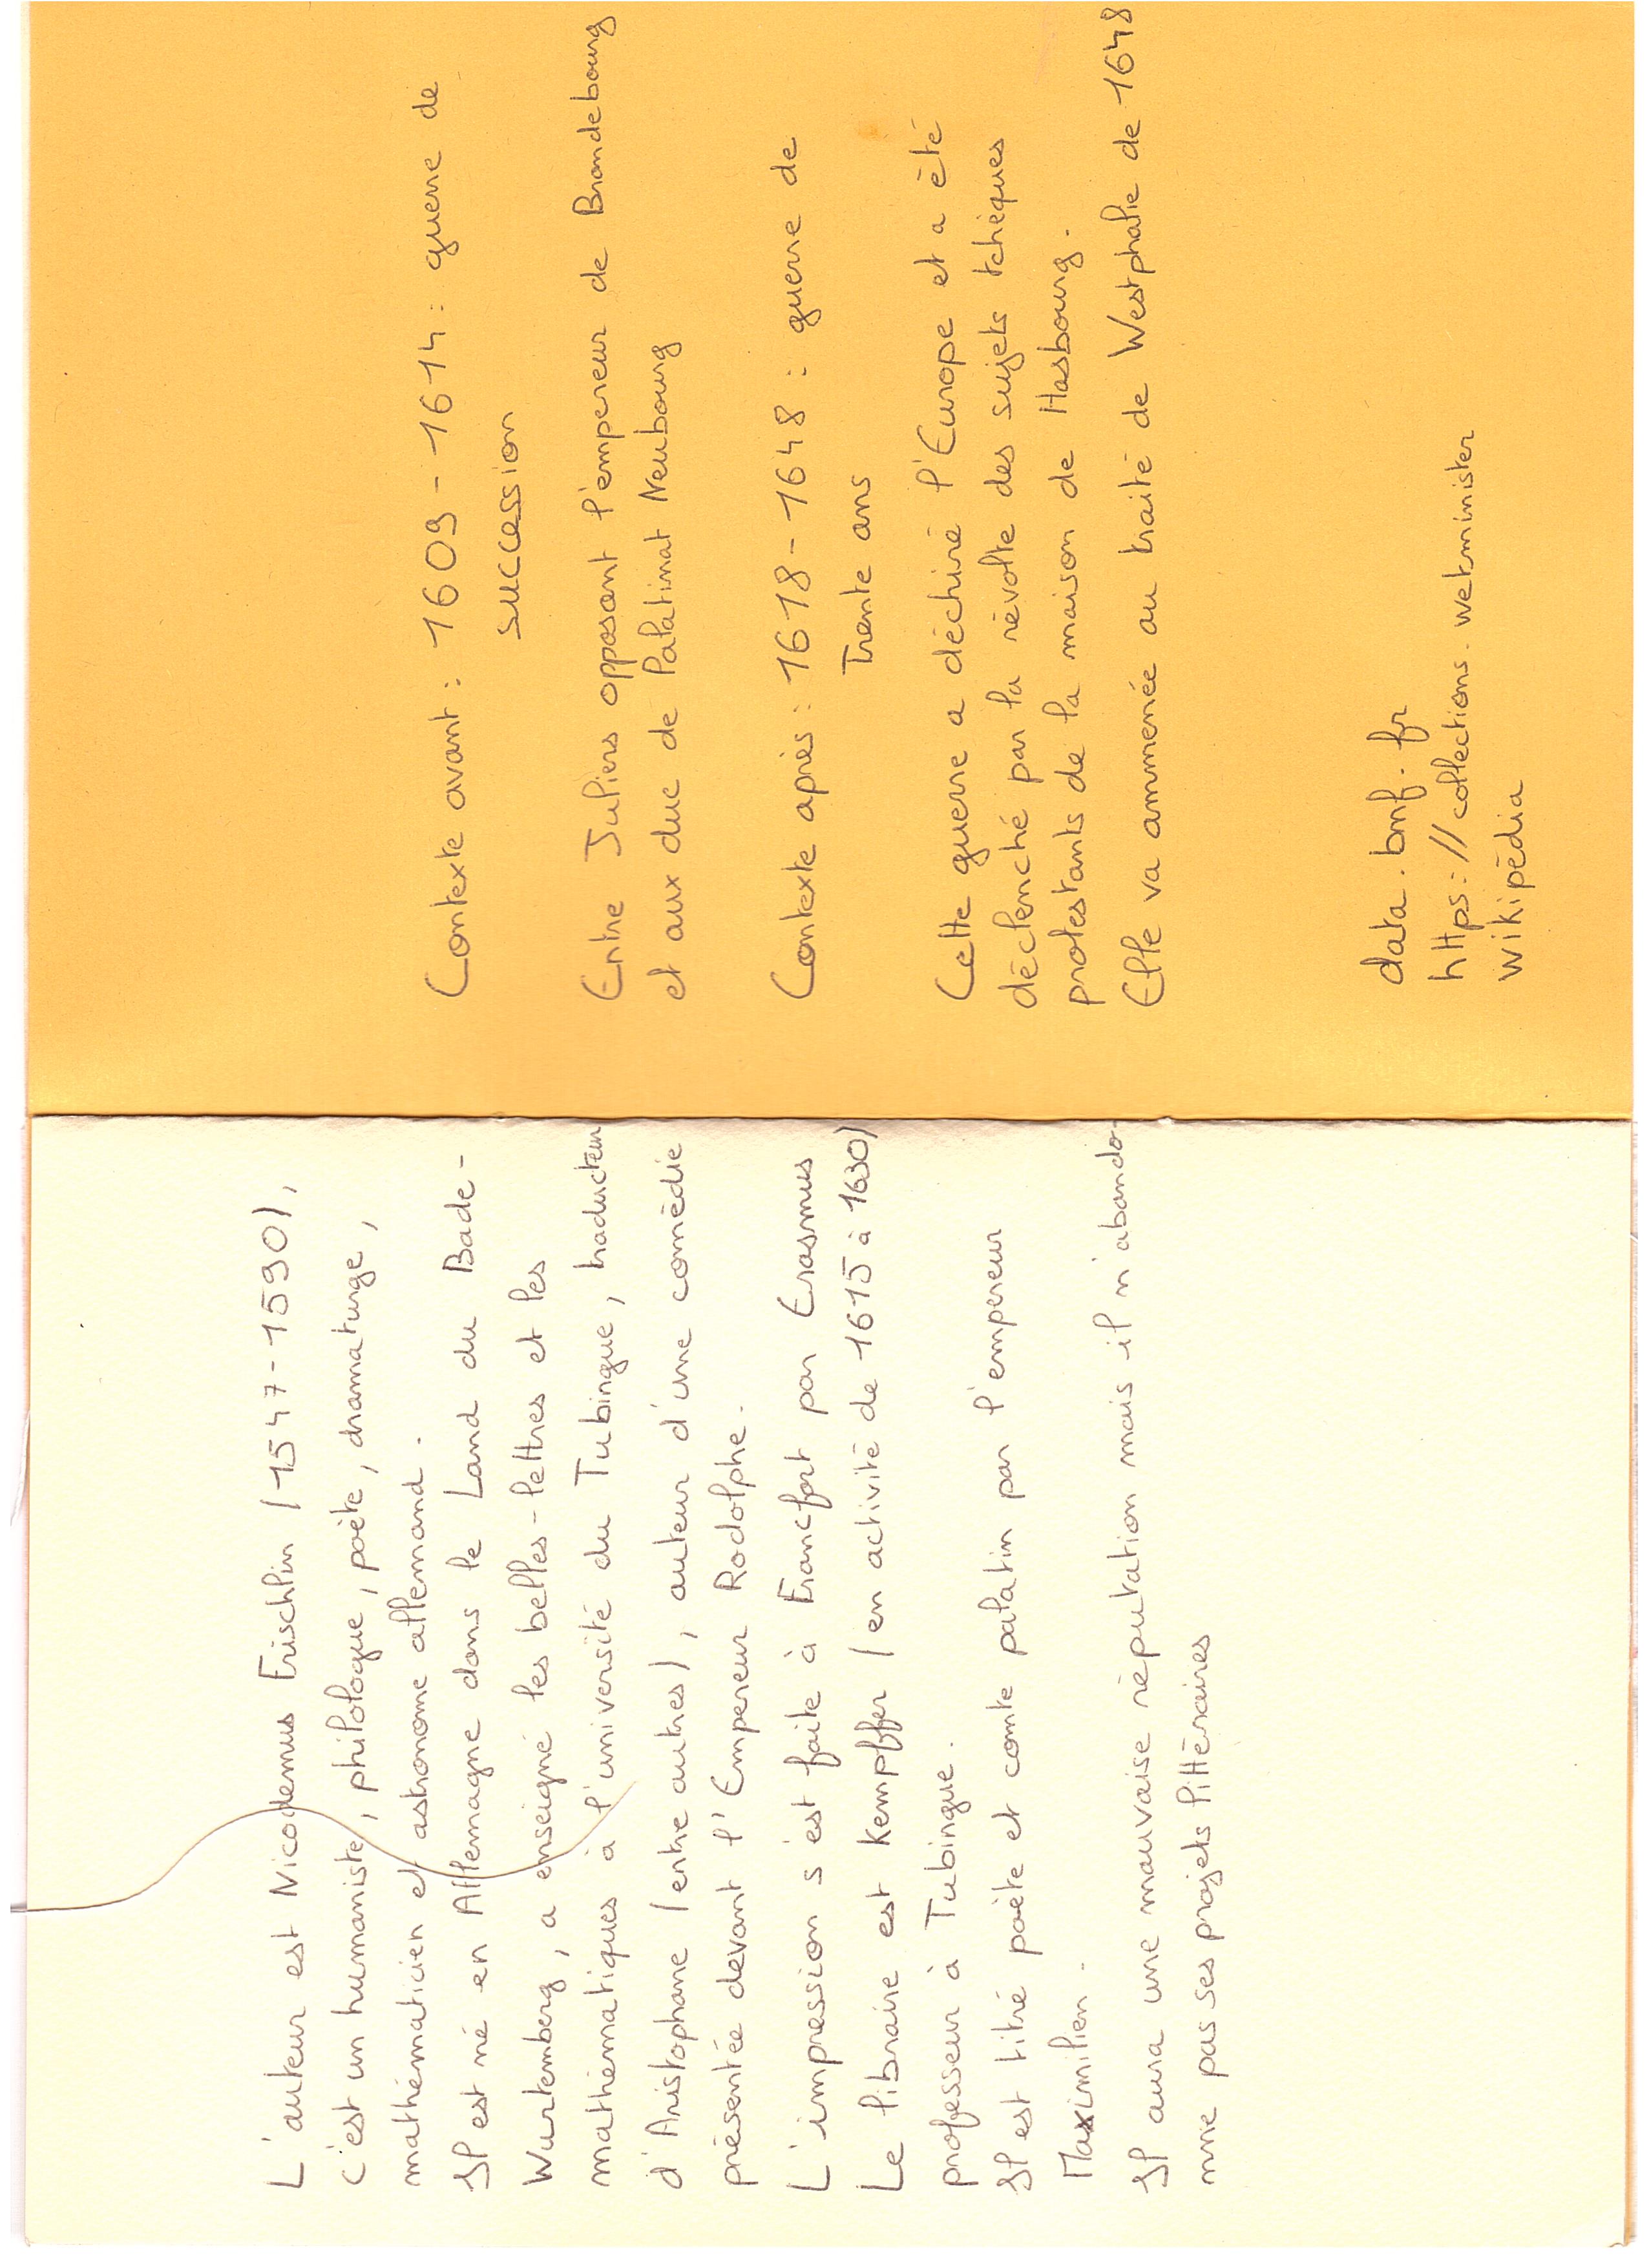 L'auteur est Nicodemus Frischlin (1547-1590),
c'est un humaniste, philologue, poète, dramaturge,
mathématicien et astronome allemand.
Il est né en Allemagne dans le Land du Bade-
Wurtemberg, a enseigné les belles-lettres et les
mathématiques à l'université du Tubingue, traducteur
d'Aristophane (entre autres), auteur d'une comédie
présentée devant l'Empereur Rodolphe.
L'impression s'est faite à Francfort par Erasmus
Le libraire est Kempffer (en activité de 1615 à 1630)
professeur à Tubingue.
Il est titré poète et comte palatin par l'empereur
Maximilien.
Il aura une mauvaise réputation mais il n'abando-
nne pas ses projets littéraires
Contexte avant : 1609-1614 : guerre de
succession
Entre Juliers opposant l'empereur de Brandebourg
et aux duc de Palatinat Neubourg
Contexte après : 1618-1648 : guerre de
Trente ans
Cette guerre a déchiré l'Europe et a été
déclenché par la révolte des sujets tchèques
protestants de la maison de Hasbourg.
Elle va ammenée au traité de Westphalie de 1648
data.bnf.fr
https://collections.wetminister
wikipédia